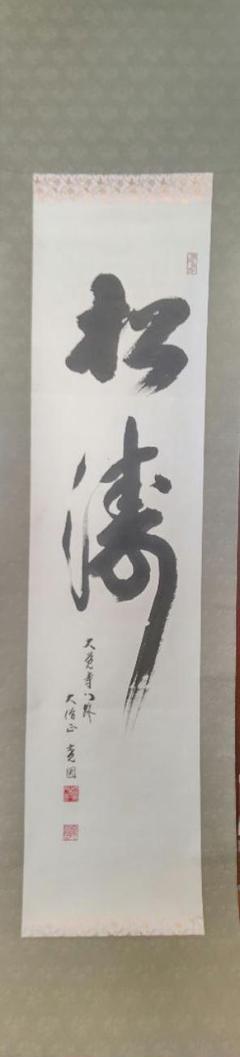 松濤
大覚寺門跡
大僧正 堯圓